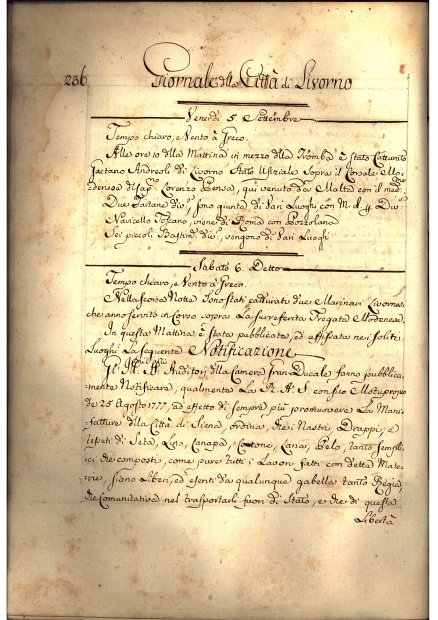 236 Giornale della Città di Livorno
Venerdi 5 Settembre
Tempo chiaro, e Vento à Greco.
Alle ore 10 della Mattina in mezzo della Tromba è stato Catturato
Gaetano Andreoli di Livorno Stato Ufiziale Sopra il Corsale Mo-
denese di Cap. Lorenzo qui venuto da Malta con il med.mo
Due Tartane div.e, sono giunte di vari Luoghi con M. d. Div.e
Navicello Toscano, viene di Roma con Pozzolana
Sei piccoli Bastim. div.i, vengono di vari Luoghi
Sabato 6. Detto
Tempo chiaro, e Vento à Greco.
Nella scorsa Notte sono stati catturati due Marinari Livornesi
che anno servito in Corso sopra La surreferita Fregata Modenese.
In questa Mattina è stata pubblicata, ed affissata nei soliti
Luoghi La seguente Notificazione
Gl' Auditori della Camera Gran Ducale fanno pubblica-
mente Notificare, qualmente La R. A. S. con suo Motuproprio
de 25 Agosto 1777, ad effetto di sempre più promuovere La Mani-
fatture della Città di Siena, ordina, che i Nastri Drappi, e
tessuti di Seta, Lino, Canapa, Cottone, Lana, Pelo, tanto sempli-
ci che composti come pure tutti i Lavori fatti con dette Mate-
rie, siano Liberi, ed esenti da qualunque gabella tanto Regia,
che Comunitativa nel trasportarli fuori di Stato, e che di questa
Libertà